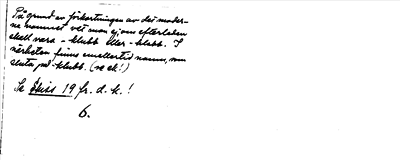 På grund av förkortningen av det moder-
na namnet vet man ej om efterleden
skall vara -klubb eller -klabb. I
närheten finns emellertid namn, som
sluta på -klubb. (se ek!)
Se Skiss 19 fr. d. k.!
6.